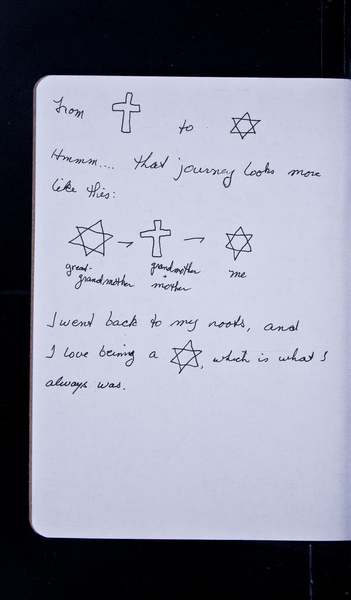 From ✝ to ✡
Hmmm.... that journey looks more
like this:
✡ → ✝ → ✡
great-grandmother grandmother + mother me
I went back to my roots, and
I love being a ✡, which is what I
always was.